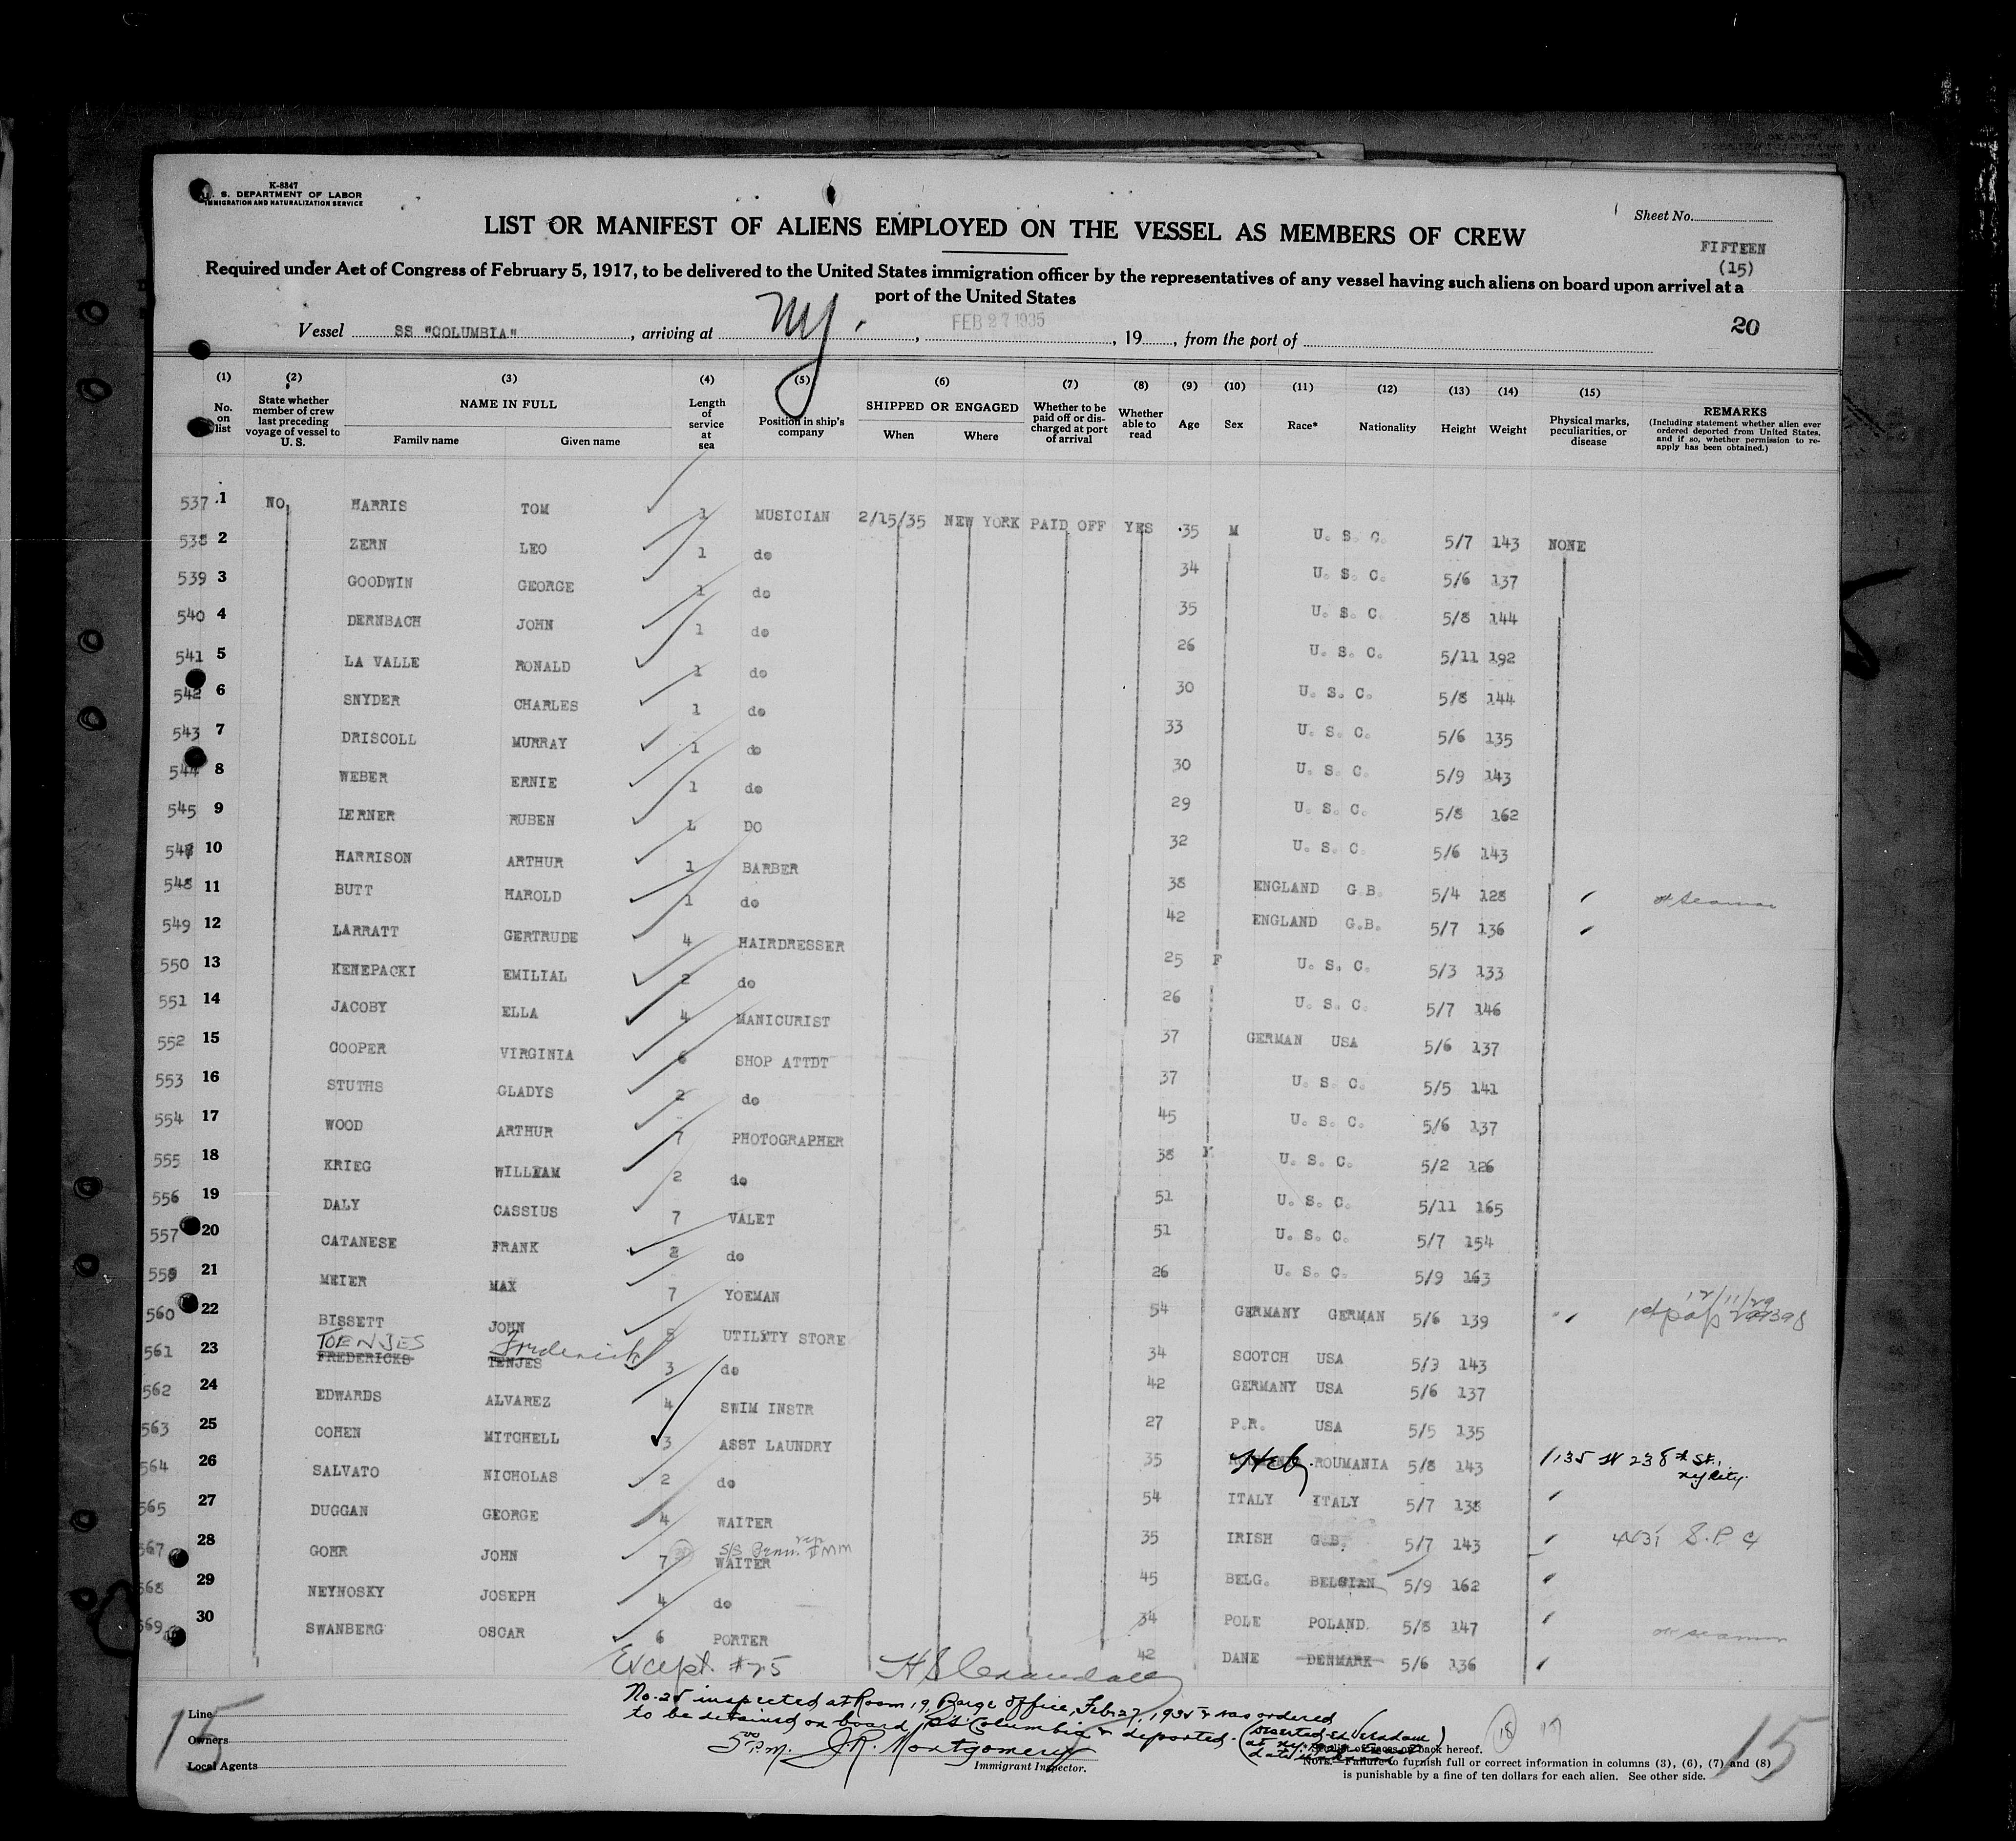 K-8847
U. S. DEPARTMENT OF LABOR
IMMIGRATION AND NATURALIZATION SERVICE
Sheet No.
LIST OR MANIFEST OF ALIENS EMPLOYED ON THE VESSEL AS MEMBERS OF CREW
FIFTEEN
(15)
Required under Act of Congress of February 5, 1917, to be delivered to the United States immigration officer by the representatives of any vessel having such aliens on board upon arrival at a
port of the United States
20
Vessel SS "COLUMBIA", arriving at NY. , FEB 27 1935, 19 , from the port of
(1) (2) (3) (4) (5) (6) (7) (8) (9) (10) (11) (12) (13) (14) (15)
No. on list State whether member of crew last preceding voyage of vessel to U. S. NAME IN FULL Family name Given name Length of service at sea Position in ship's company SHIPPED OR ENGAGED When Where Whether to be paid off or discharged at port of arrival Whether able to read Age Sex Race* Nationality Height Weight Physical marks, peculiarities, or disease REMARKS (Including statement whether alien ever ordered deported from United States, and if so, whether permission to reapply has been obtained.)
537 1 NO HARRIS TOM 1 MUSICIAN 2/15/35 NEW YORK PAID OFF YES 35 M U. S. C. 5/7 143 NONE
538 2 ZERN LEO 1 do 34 U. S. C. 5/6 137
539 3 GOODWIN GEORGE 1 do 35 U. S. C. 5/8 144
540 4 DERNBACH JOHN 1 do 26 U. S. C. 5/11 192
541 5 LA VALLE RONALD 1 do 30 U. S. C. 5/8 144
542 6 SNYDER CHARLES 1 do 33 U. S. C. 5/6 135
543 7 DRISCOLL MURRAY 1 do 30 U. S. C. 5/9 143
544 8 WEBER ERNIE 1 do 29 U. S. C. 5/8 162
545 9 LERNER RUBEN 1 DO 32 U. S. C. 5/6 143
547 10 HARRISON ARTHUR 1 BARBER 38 ENGLAND G.B. 5/4 128
548 11 BUTT HAROLD 1 do 42 ENGLAND G.B. 5/7 136
549 12 LARRATT GERTRUDE 4 HAIRDRESSER 25 F U. S. C. 5/3 133
550 13 KENEPACKI EMILIAL 2 do 26 U. S. C. 5/7 146
551 14 JACOBY ELLA 4 MANICURIST 37 GERMAN USA 5/6 137
552 15 COOPER VIRGINIA 6 SHOP ATTDT 37 U. S. C. 5/5 141
553 16 STUTHS GLADYS 2 do 45 U. S. C. 5/6 137
554 17 WOOD ARTHUR 7 PHOTOGRAPHER 38 M U. S. C. 5/2 126
555 18 KRIEG WILLIAM 2 do 51 U. S. C. 5/11 165
556 19 DALY CASSIUS 7 VALET 51 U. S. C. 5/7 154
557 20 CATANESE FRANK 2 do 26 U. S. C. 5/9 163
559 21 MEIER MAX 7 YOEMAN 54 GERMANY GERMAN 5/6 139 12/11/29
560 22 BISSETT JOHN 8 UTILITY STORE 34 SCOTCH USA 5/3 143
TOENJES Frederick
561 23 FREDERICKS TENJES 3 do 42 GERMANY USA 5/6 137
562 24 EDWARDS ALVAREZ 4 SWIM INSTR 27 P.R. USA 5/5 135
563 25 COHEN MITCHELL 3 ASST LAUNDRY 35 Heb. ROUMANIA 5/8 143 135 W 238th St., NY City.
564 26 SALVATO NICHOLAS 2 do 54 ITALY ITALY 5/7 138
565 27 DUGGAN GEORGE 4 WAITER 35 IRISH G.B. 5/7 143
567 28 GOHR JOHN 7 WAITER 45 BELG. BELGIAN 5/9 162
568 29 NEYNOSKY JOSEPH 4 do 34 POLE POLAND. 5/8 147
569 30 SWANBERG OSCAR 6 PORTER 42 DANE DENMARK 5/6 136
Except #25
No. 25 inspected at Room 19, Barge Office, Feb 27, 1935 & was ordered
to be detained on board SS Columbia & deported.
5 P.M. J.R. Montgomery
Immigrant Inspector.
Line
Owners
Local Agents
15
18
19
15
back hereof.
NOTE.—Failure to furnish full or correct information in columns (3), (6), (7) and (8)
is punishable by a fine of ten dollars for each alien. See other side.